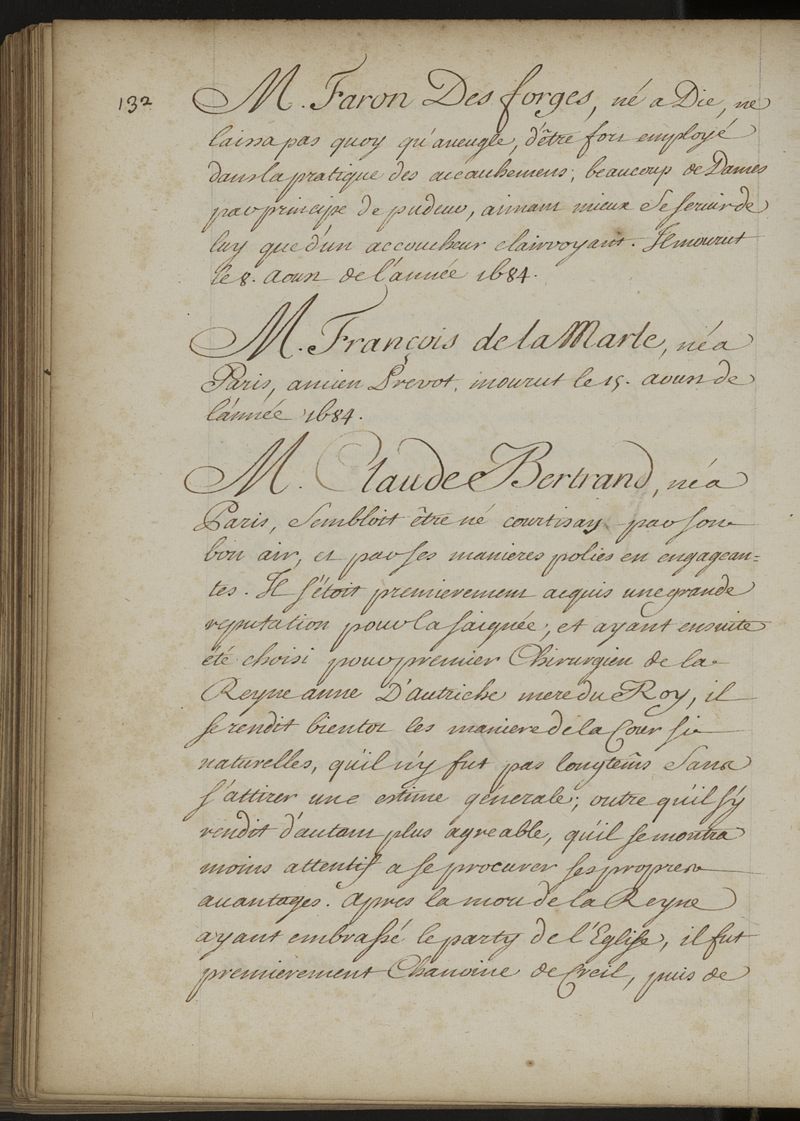 132
M. Faron Des forges, né a Die, ne
laissa pas quoy qu'aueugle, d'être fort employé
dans la pratique des accouchemens; beaucoup de Dames
par principe de pudeur, aimant mieux Se seruir de
luy que d'un accoucheur clairvoyant. Il mourut
le 8. Aoust de l'année 1684.
M. François de la Marle, né a
Paris, ancien Prevot, mourut le 15. aoust de
l'année 1684.
M. Claude Bertrand, né a
Paris, Sembloit être né courtisan par son
bon air, et par ses manieres polies en engagean=
tes. Il s'étoit premierement acquis une grande
reputation pour la saignée, et ayant ensuite
été choisi pour premier Chirurgien de la
Reyne anne D'autriche mere du Roy, il
se rendit bientot les maniere de la Cour si
naturelles, qu'il n'y fut pas longtems Sans
s'attirer une estime generale; outre qu'il s'y
rendit d'autant plus agreable, qu'il se montra
moins attentif a se procurer ses propres
auantages. Apres la mort de la Reyne
ayant embrassé le party de l'Eglise, il fut
premierement Chanoine de Creil, puis de